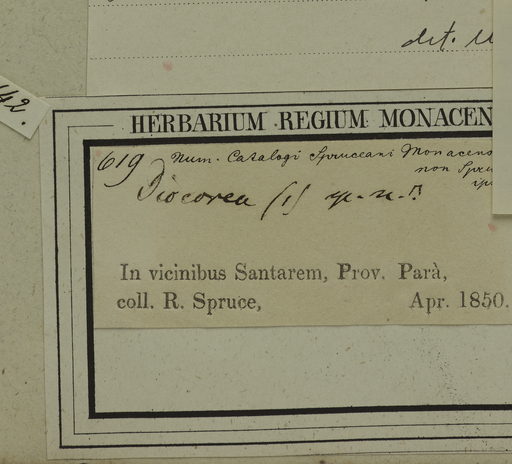 det.
42.
HERBARIUM REGIUM MONACEN
619 Num. Catalogi Spruceani Monacens
non Spru
ips
Diocorea (1) sp. n.?
In vicinibus Santarem, Prov. Parà,
coll. R. Spruce, Apr. 1850.